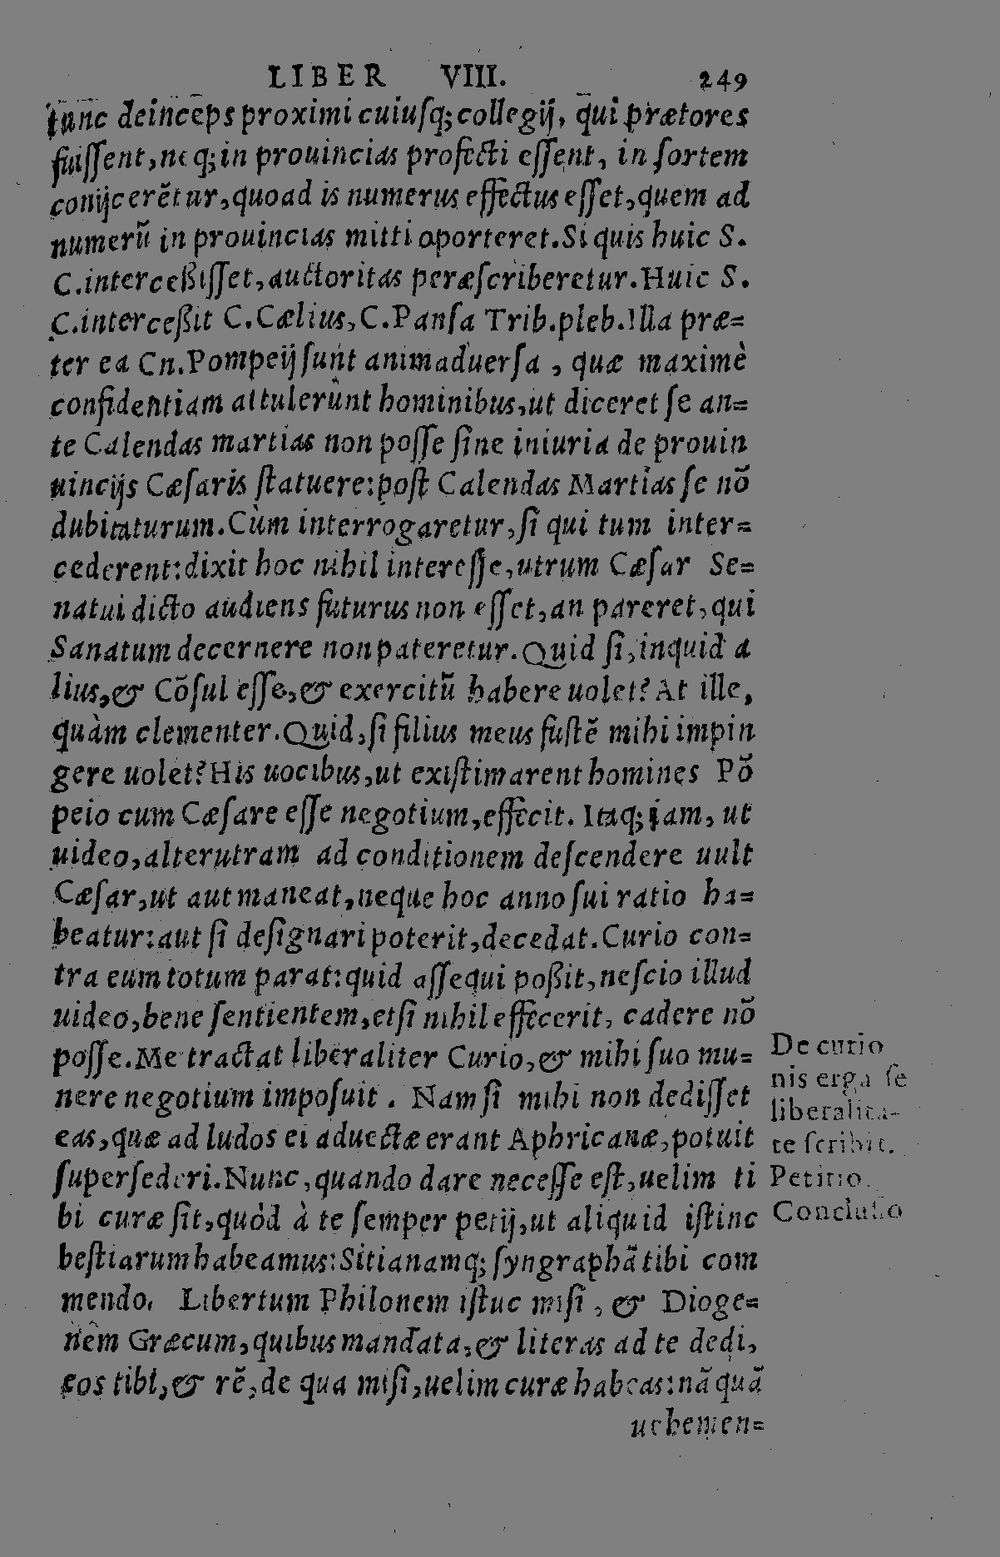 LIBER VIII. 249
tunc deinceps proximi cuiuſq; collegij, qui prætores
fuiſſent, neq; in prouincias profecti eſſent, in ſortem
conijcerẽtur, quoad is numerus effectus eſſet, quem ad
numerũ in prouincias mitti oporteret. Si quis huic S.
C. interceßiſſet, auctoritas peræſcriberetur. Huic S.
C. interceßit C. Cælius, C. Panſa Trib. pleb. Illa præ=
ter ea Cn. Pompeij ſunt animaduerſa, quæ maximè
confidentiam attulerunt hominibus, ut diceret ſe an=
te Calendas martias non poſſe ſine iniuria de prouin
uincijs Cæſaris ſtatuere: poſt Calendas Martias ſe nõ
dubitaturum. Cùm interrogaretur, ſi qui tum inter=
cederent: dixit hoc nihil intereſſe, utrum Cæſar Se=
natui dicto audiens futurus non eſſet, an pareret, qui
Sanatum decernere non pateretur. Quid ſi, inquid a
lius, & Cõſul eſſe, & exercitũ habere uolet? At ille,
quàm clementer. Quid, ſi filius meus fuſtẽ mihi impin
gere uolet? His uocibus, ut exiſtimarent homines Põ
peio cum Cæſare eſſe negotium, effecit. Itaq; iam, ut
uideo, alterutram ad conditionem deſcendere uult
Cæſar, ut aut maneat, neque hoc anno ſui ratio ha=
beatur: aut ſi deſignari poterit, decedat. Curio con=
tra eum totum parat: quid aſſequi poßit, neſcio illud
uideo, bene ſentientem, etſi nihil effecerit, cadere nõ
poſſe. Me tractat liberaliter Curio, & mihi ſuo mu=
nere negotium impoſuit. Nam ſi mihi non dediſſet
eas, quæ ad ludos ei aduectæ erant Aphricanæ, potuit
ſuperſederi. Nunc, quando dare neceſſe eſt, uelim ti
bi curæ ſit, quòd à te ſemper petij, ut aliquid iſtinc
beſtiarum habeamus: Sitianamq; ſyngraphã tibi com
mendo. Libertum Philonem iſtuc miſi, & Dioge=
nem Græcum, quibus mandata, & literas ad te dedi,
eos tibi, & rẽ, de qua miſi, uelim curæ habeas: nã quã
uehemen=
De curio
nis erga ſe
liberalita-
te ſcribit.
Petitio.
Concluſio